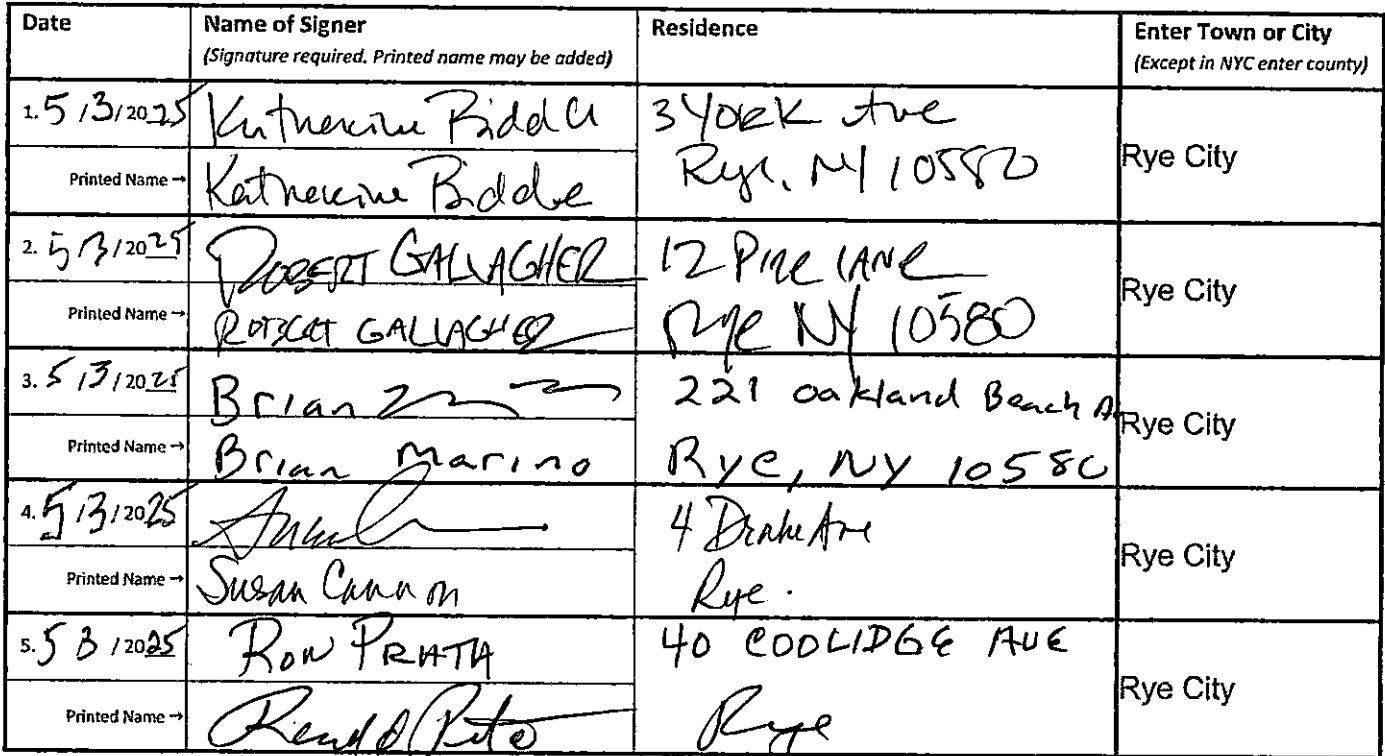 Date Name of Signer Residence Enter Town or City
(Signature required. Printed name may be added) (Except in NYC enter county)
1. 5/3/2025 Katherine Biddle 3 York Ave
Rye, NY 10580 Rye City
Printed Name → Katherine Biddle
2. 5/3/2025 ROBERT GALLAGHER 12 Pine Lane
Rye NY 10580 Rye City
Printed Name → ROBERT GALLAGHER
3. 5/3/2025 Brian 221 Oakland Beach A
Rye, NY 10580 Rye City
Printed Name → Brian Marino
4. 5/3/2025 4 Drake Ave
Rye. Rye City
Printed Name → Susan Cannon
5. 5 3/2025 RON PRATA 40 COOLIDGE AVE
Rye Rye City
Printed Name → Ronald